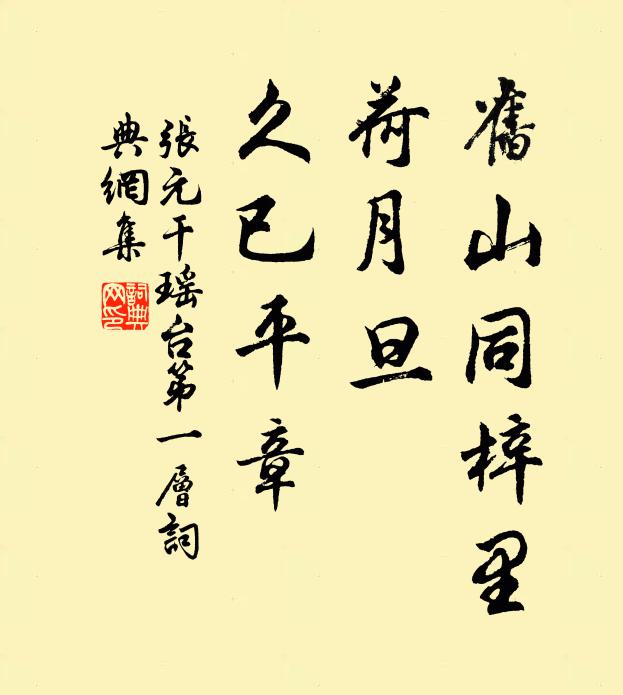 舊山同梓里
荷月旦
久已平章
張元干瑶台第一層詞
典網集
詞典網印